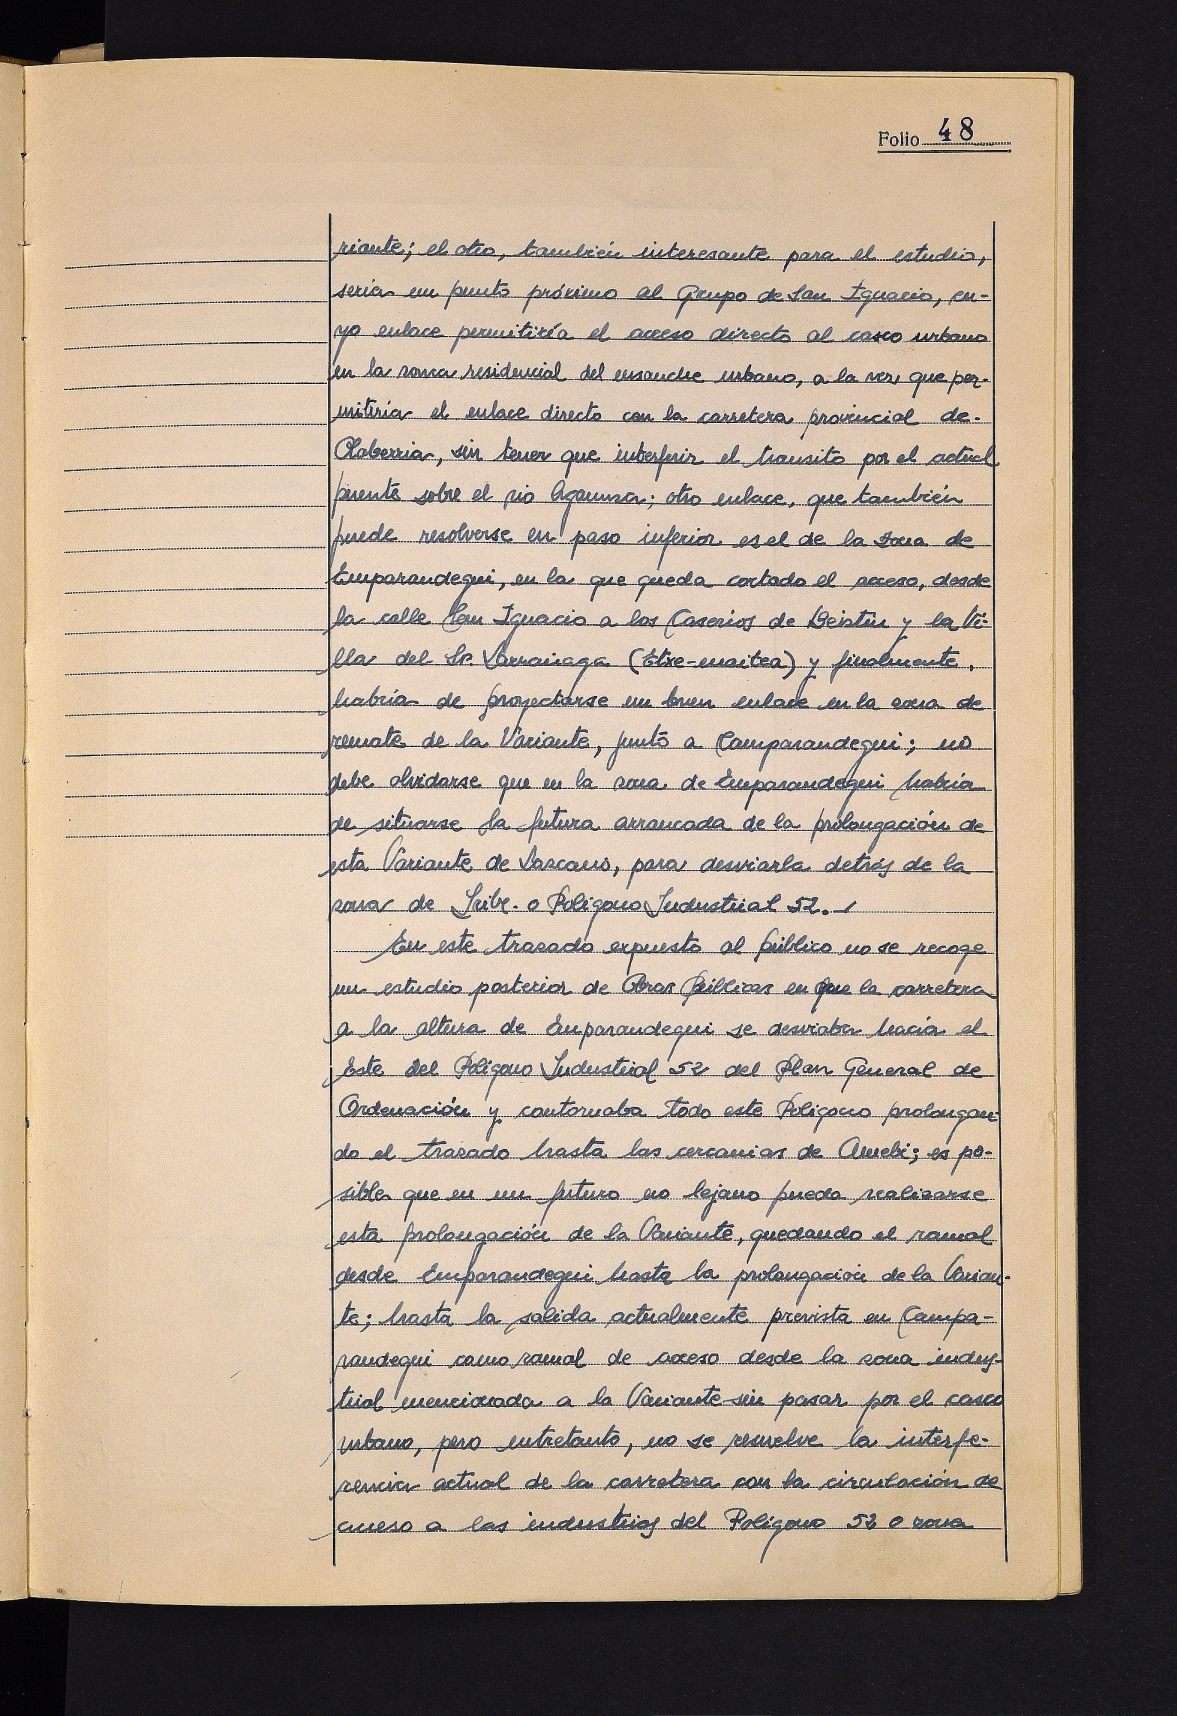 Folio 48
riante; el otro, también interesante para el estudio,
seria un punto próximo al Grupo de San Ignacio, cu-
yo enlace permitiría el acceso directo al casco urbano
en la zona residencial del ensanche urbano, a la vez que per-
mitiria el enlace directo con la carretera provincial de-
Olaberria, sin tener que interferir el transito por el actual
puente sobre el rio Agaunza; otro enlace, que también
puede resolverse en paso inferior es el de la zona de
Emparandegui, en la que queda cortado el acceso, desde
la calle San Ignacio a los Caserios de Beistin y la Vi-
lla del Sr. Larrainaga (Etxe-maitea) y finalmente,
habría de proyectarse un buen enlace en la zona de
remate de la Variante, junto a Camparandegui; no
debe olvidarse que en la zona de Emparandegui habria
de situarse la futura arrancada de la prolongación de
esta Variante de Lazcano, para desviarla detrás de la
zona de Iribe. o Poligono Industrial 52.
En este trazado expuesto al público no se recoge
un estudio posterior de Obras Públicas en que la carretera
a la altura de Emparandegui se desviaba hacia el
Este del Poligono Industrial 52 del Plan General de
Ordenación y contornaba todo este Poligono prolongan-
do el trazado hasta las cercanias de Amebi; es po-
sible que en un futuro no lejano pueda realizarse
esta prolongación de la Variante, quedando el ramal
desde Emparandegui hasta la prolongación de la Varian-
te; hasta la salida actualmente prevista en Campa-
randegui como ramal de acceso desde la zona indus-
trial mencionada a la Variante sin pasar por el casco
urbano, pero entretanto, no se resuelve la interfe-
rencia actual de la carretera con la circulación de
acceso a las industrias del Poligono 52 o zona